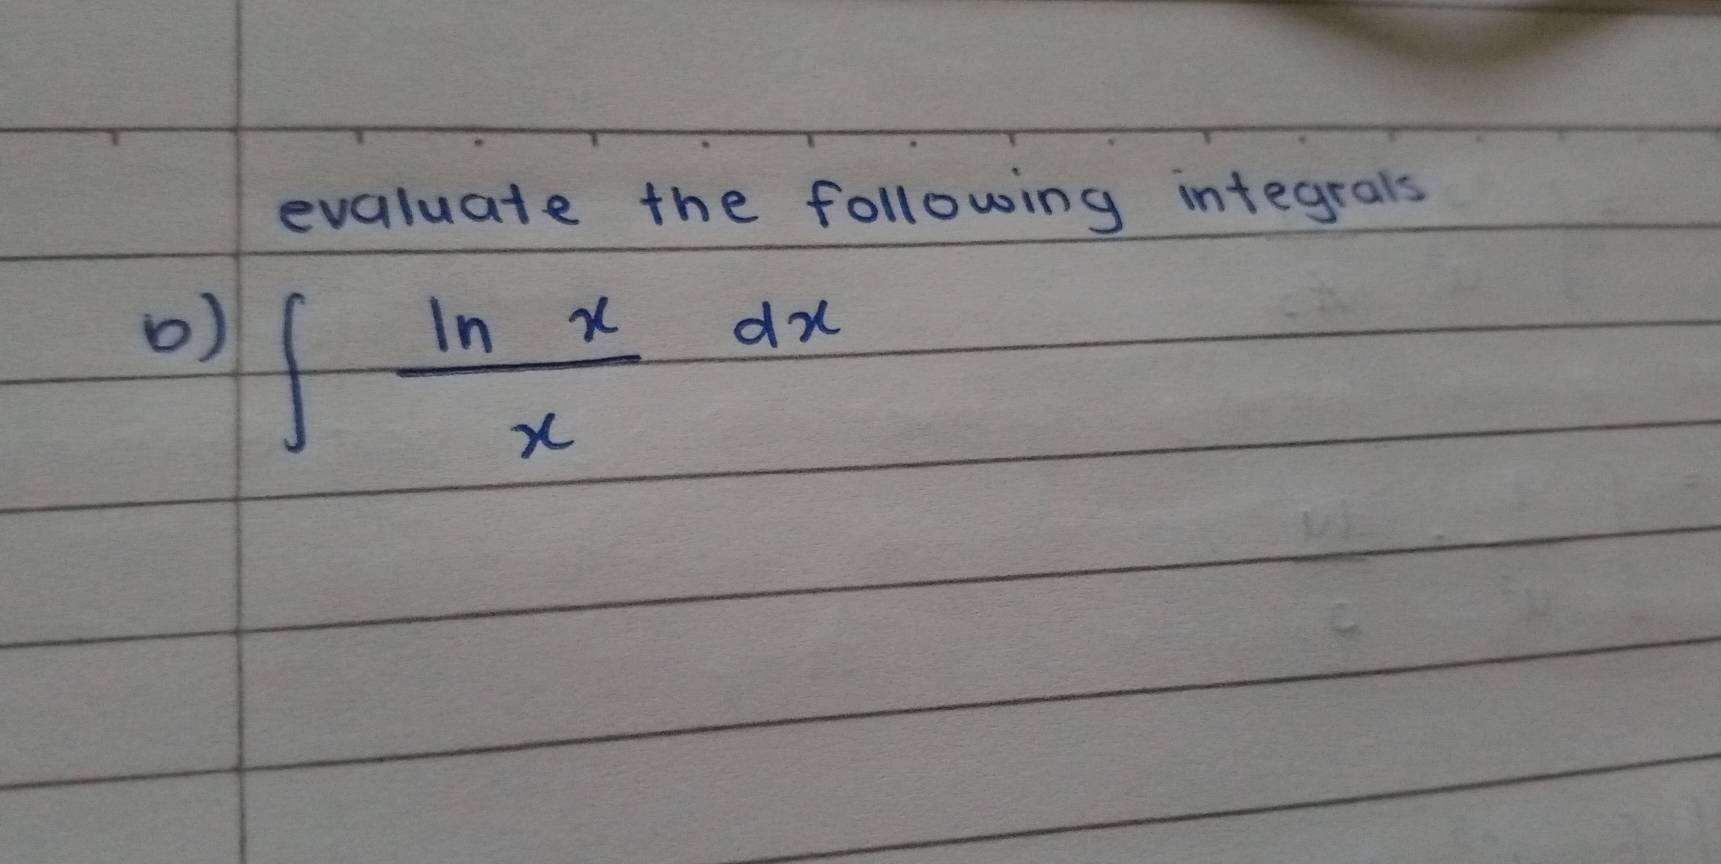 evaluate the following integrals
b) ∫ ln x dx
x